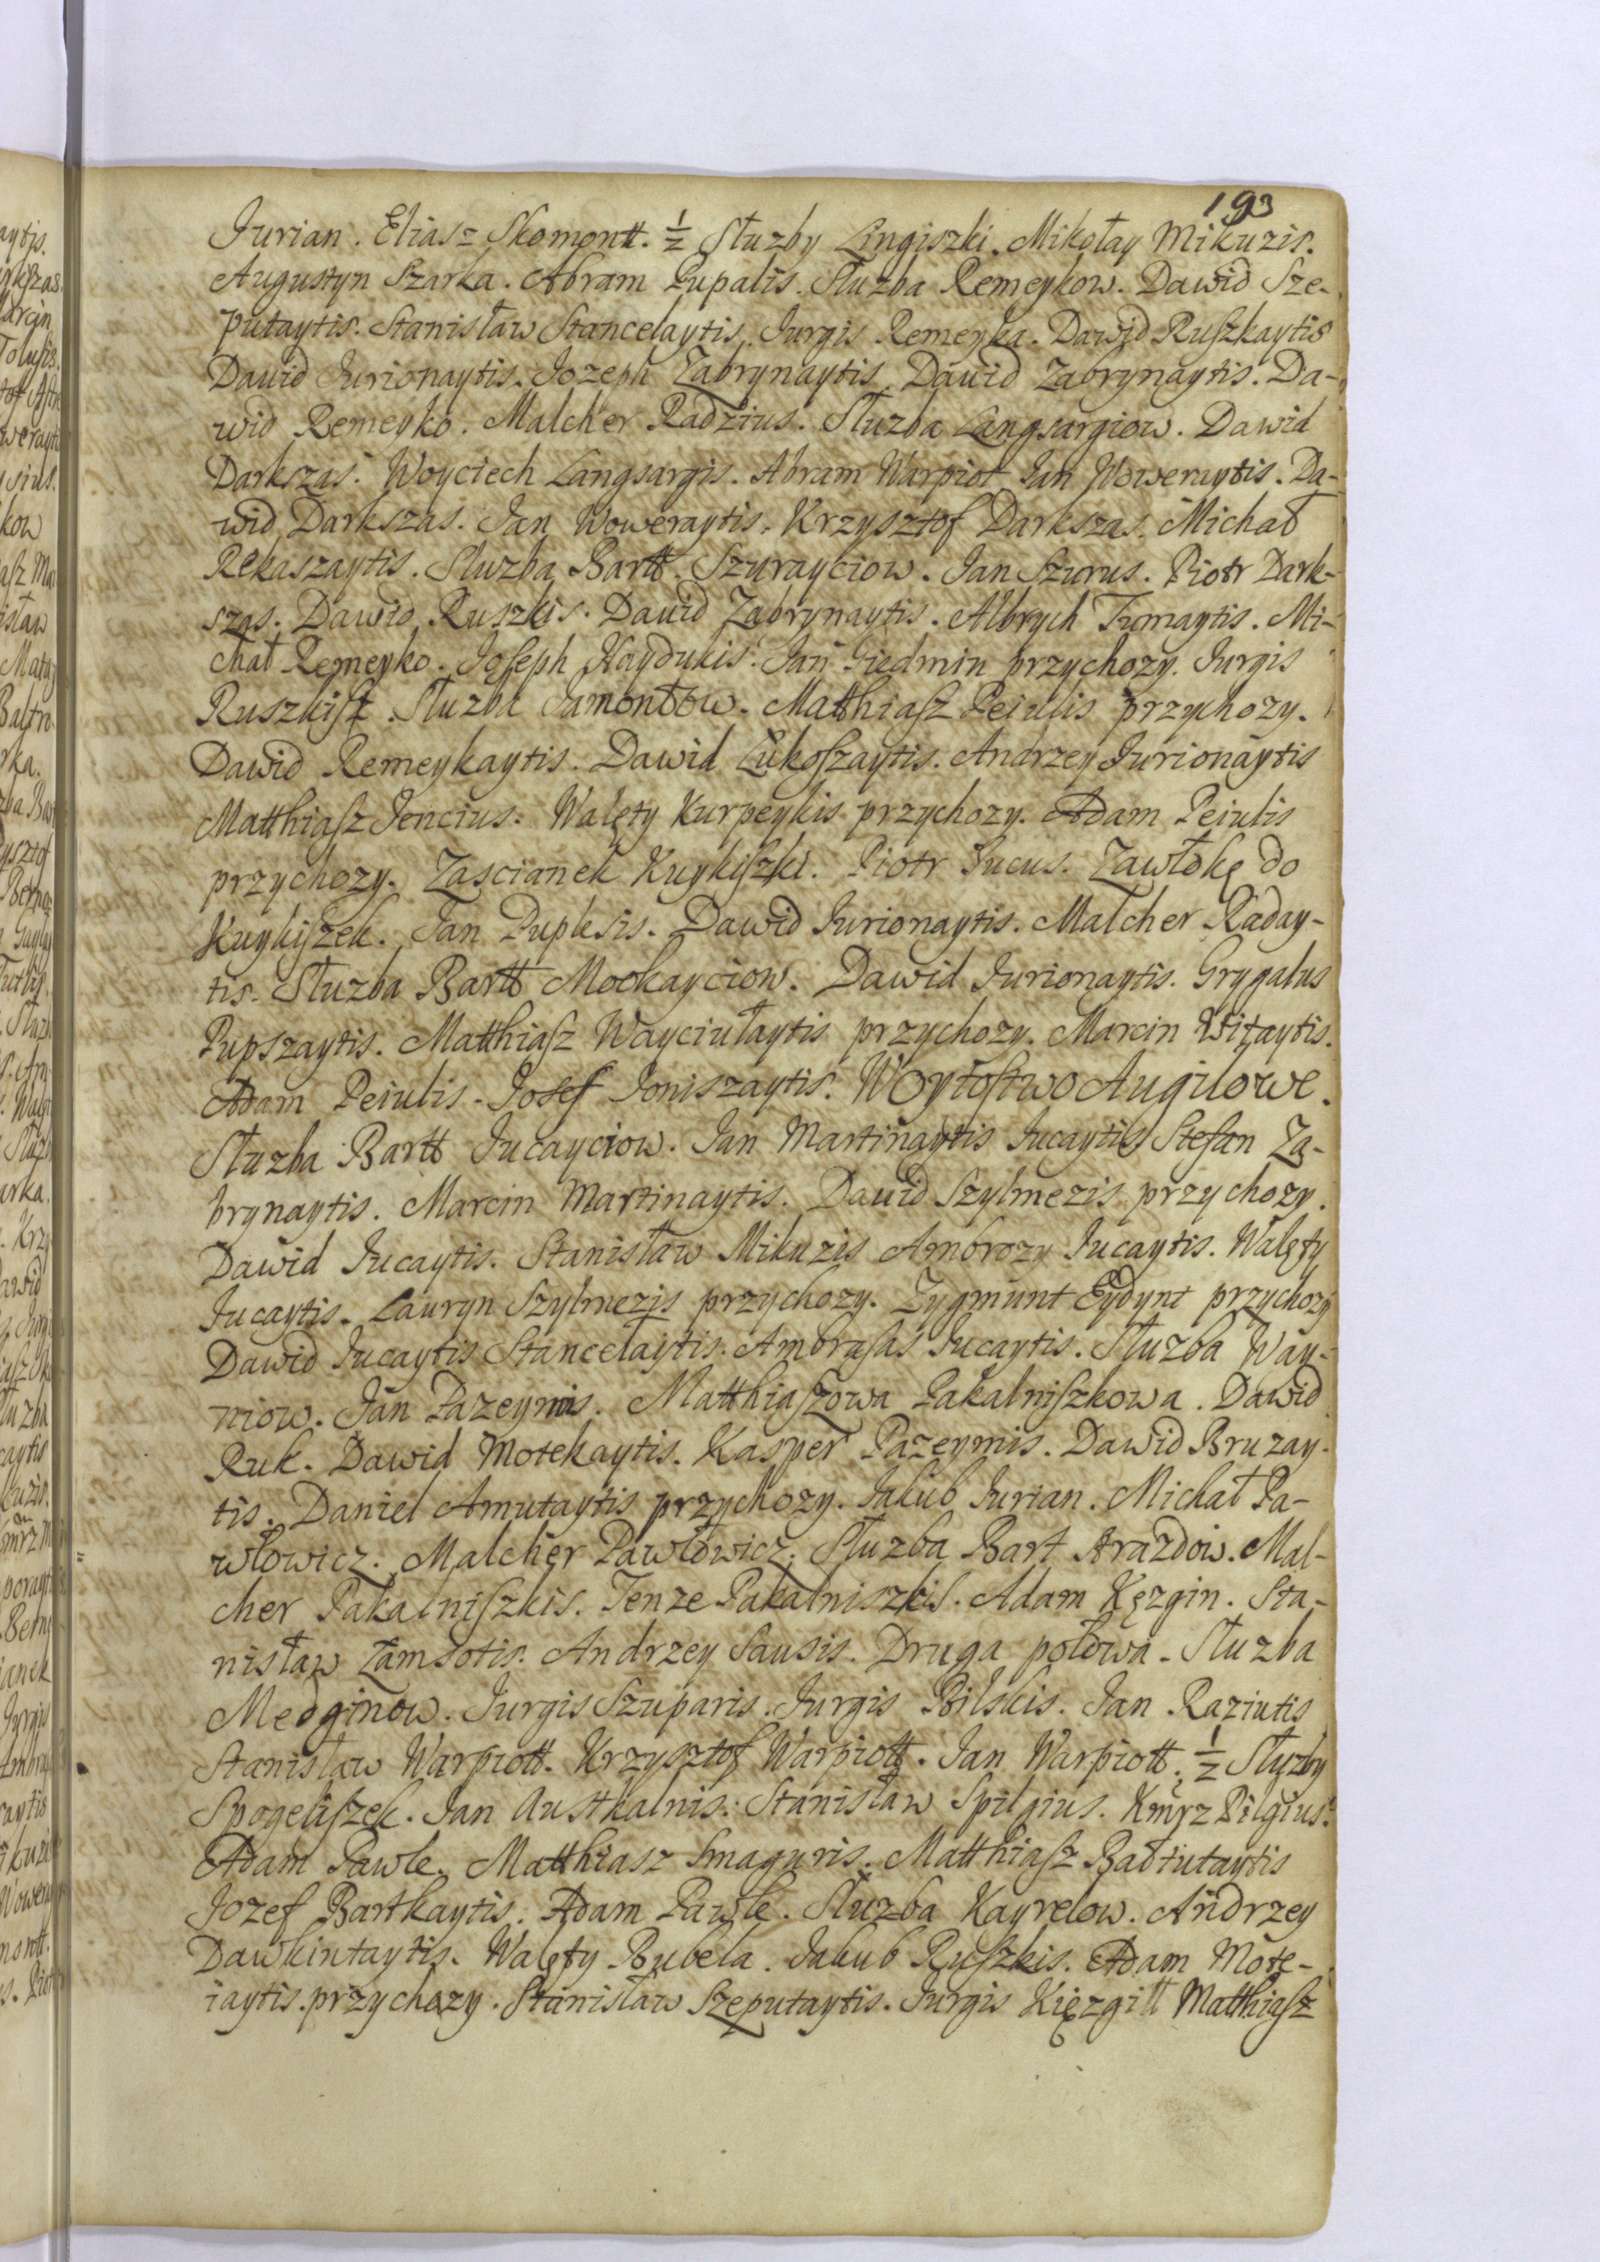 193
Jurian. Eliasz Skomontt. ½ Słuzby Lingiszki. Mikołay Mikuzis.
Augustyn Szarka. Abram Pupalis. Słuzba Remeykow. Dawid Sze-
putaytis. Stanisław Stancelaytis. Jurgis Remeyka. Dawid Ruszkaytis
Dawid Jurionaytis. Jozeph Zabrynaytis. Dawid Zabrynaytis. Da-
wid Remeyko. Malcher Radzius. Słuzba Langsargiow. Dawid
Darkszas. Woyciech Langsargis. Abram Warpiot Jan Woweraytis. Da-
wid Darkszas. Jan Woweraytis. Krzysztof Darkszas. Michał
Rekaszaytis. Słuzba Bartt. Szurayciow. Jan Szurus. Piotr Dark-
szas. Dawid Ruszkis. Dawid Zabrynaytis. Albrych Tumaytis. Mi-
chał Remeyko. Joseph Haydukis. Jan Giedmin przychozy. Jurgis
Ruszkisz. Słuzba Jamontow. Matthiasz Peiulis przychozy.
Dawid Remeykaytis. Dawid Lukoszaytis. Andrzey Jurionaytis
Matthiasz Jencius. Walęty Kurpeykis przychozy. Adam Peiulis
przychozy. Zascianek Kuykiszki. Piotr Jucus. Zawłokę do
Kuykiszek. Jan Puplesis. Dawid Jurionaytis. Malcher Raday-
tis. Słuzba Bartt Mockayciow. Dawid Jurionaytis. Grygalus
Pupszaytis. Matthiasz Wayciułaytis przychozy. Marcin Witaytis.
Adam Peiulis. Josef Joniszaytis. Woytostwo Augilowe.
Słuzba Bartt Jucayciow. Jan Martinaytis Jucaytis Stefan Za-
brynaytis. Marcin Martinaytis. Dawid Szylmezis przychozy.
Dawid Jucaytis. Stanisław Mikuzis Ambrozy Jucaytis. Walęty
Jucaytis. Lauryn Szylmezis przychozy. Zygmunt Eydynt przychozy
Dawid Jucaytis Stancelaytis. Ambrasas Jucaytis. Słuzba Way-
niow. Jan Pazeymis. Matthiaszowa Pakalniszkowa. Dawid
Ruk. Dawid Motekaytis. Kasper Pazeymis. Dawid Bruzay-
tis. Daniel Amutaytis przychozy. Jakub Jurian. Michał Pa-
włowicz. Malcher Pawłowicz. Słuzba Bart Arazdow. Mal-
cher Pakalniszkis. Tenze Pakalniszkis. Adam Kęzgin. Sta-
nisław Łamsotis. Andrzey Sausis. Druga połowa. Słuzba
Medginow. Jurgis Szuparis. Jurgis Bilskis. Jan Raziutis
Stanisław Warpiott. Krzysztof Warpiott. Jan Warpiott. ½ Słuzby
Spogeliszek. Jan Austkalnis. Stanisław Spilgius. Kmrz Pilgius.
Adam Pawle. Matthiasz Smaguris. Matthiasz Baltutaytis
Jozef Bartkaytis. Adam Pawle. Słuzba Kayrelow. Andrzey
Dawkintaytis. Walęty Bubela. Jakub Ruszkis. Adam Mote-
iaytis. przychozy. Stanisław Szeputaytis. Jurgis Kięzgiłł Matthiasz